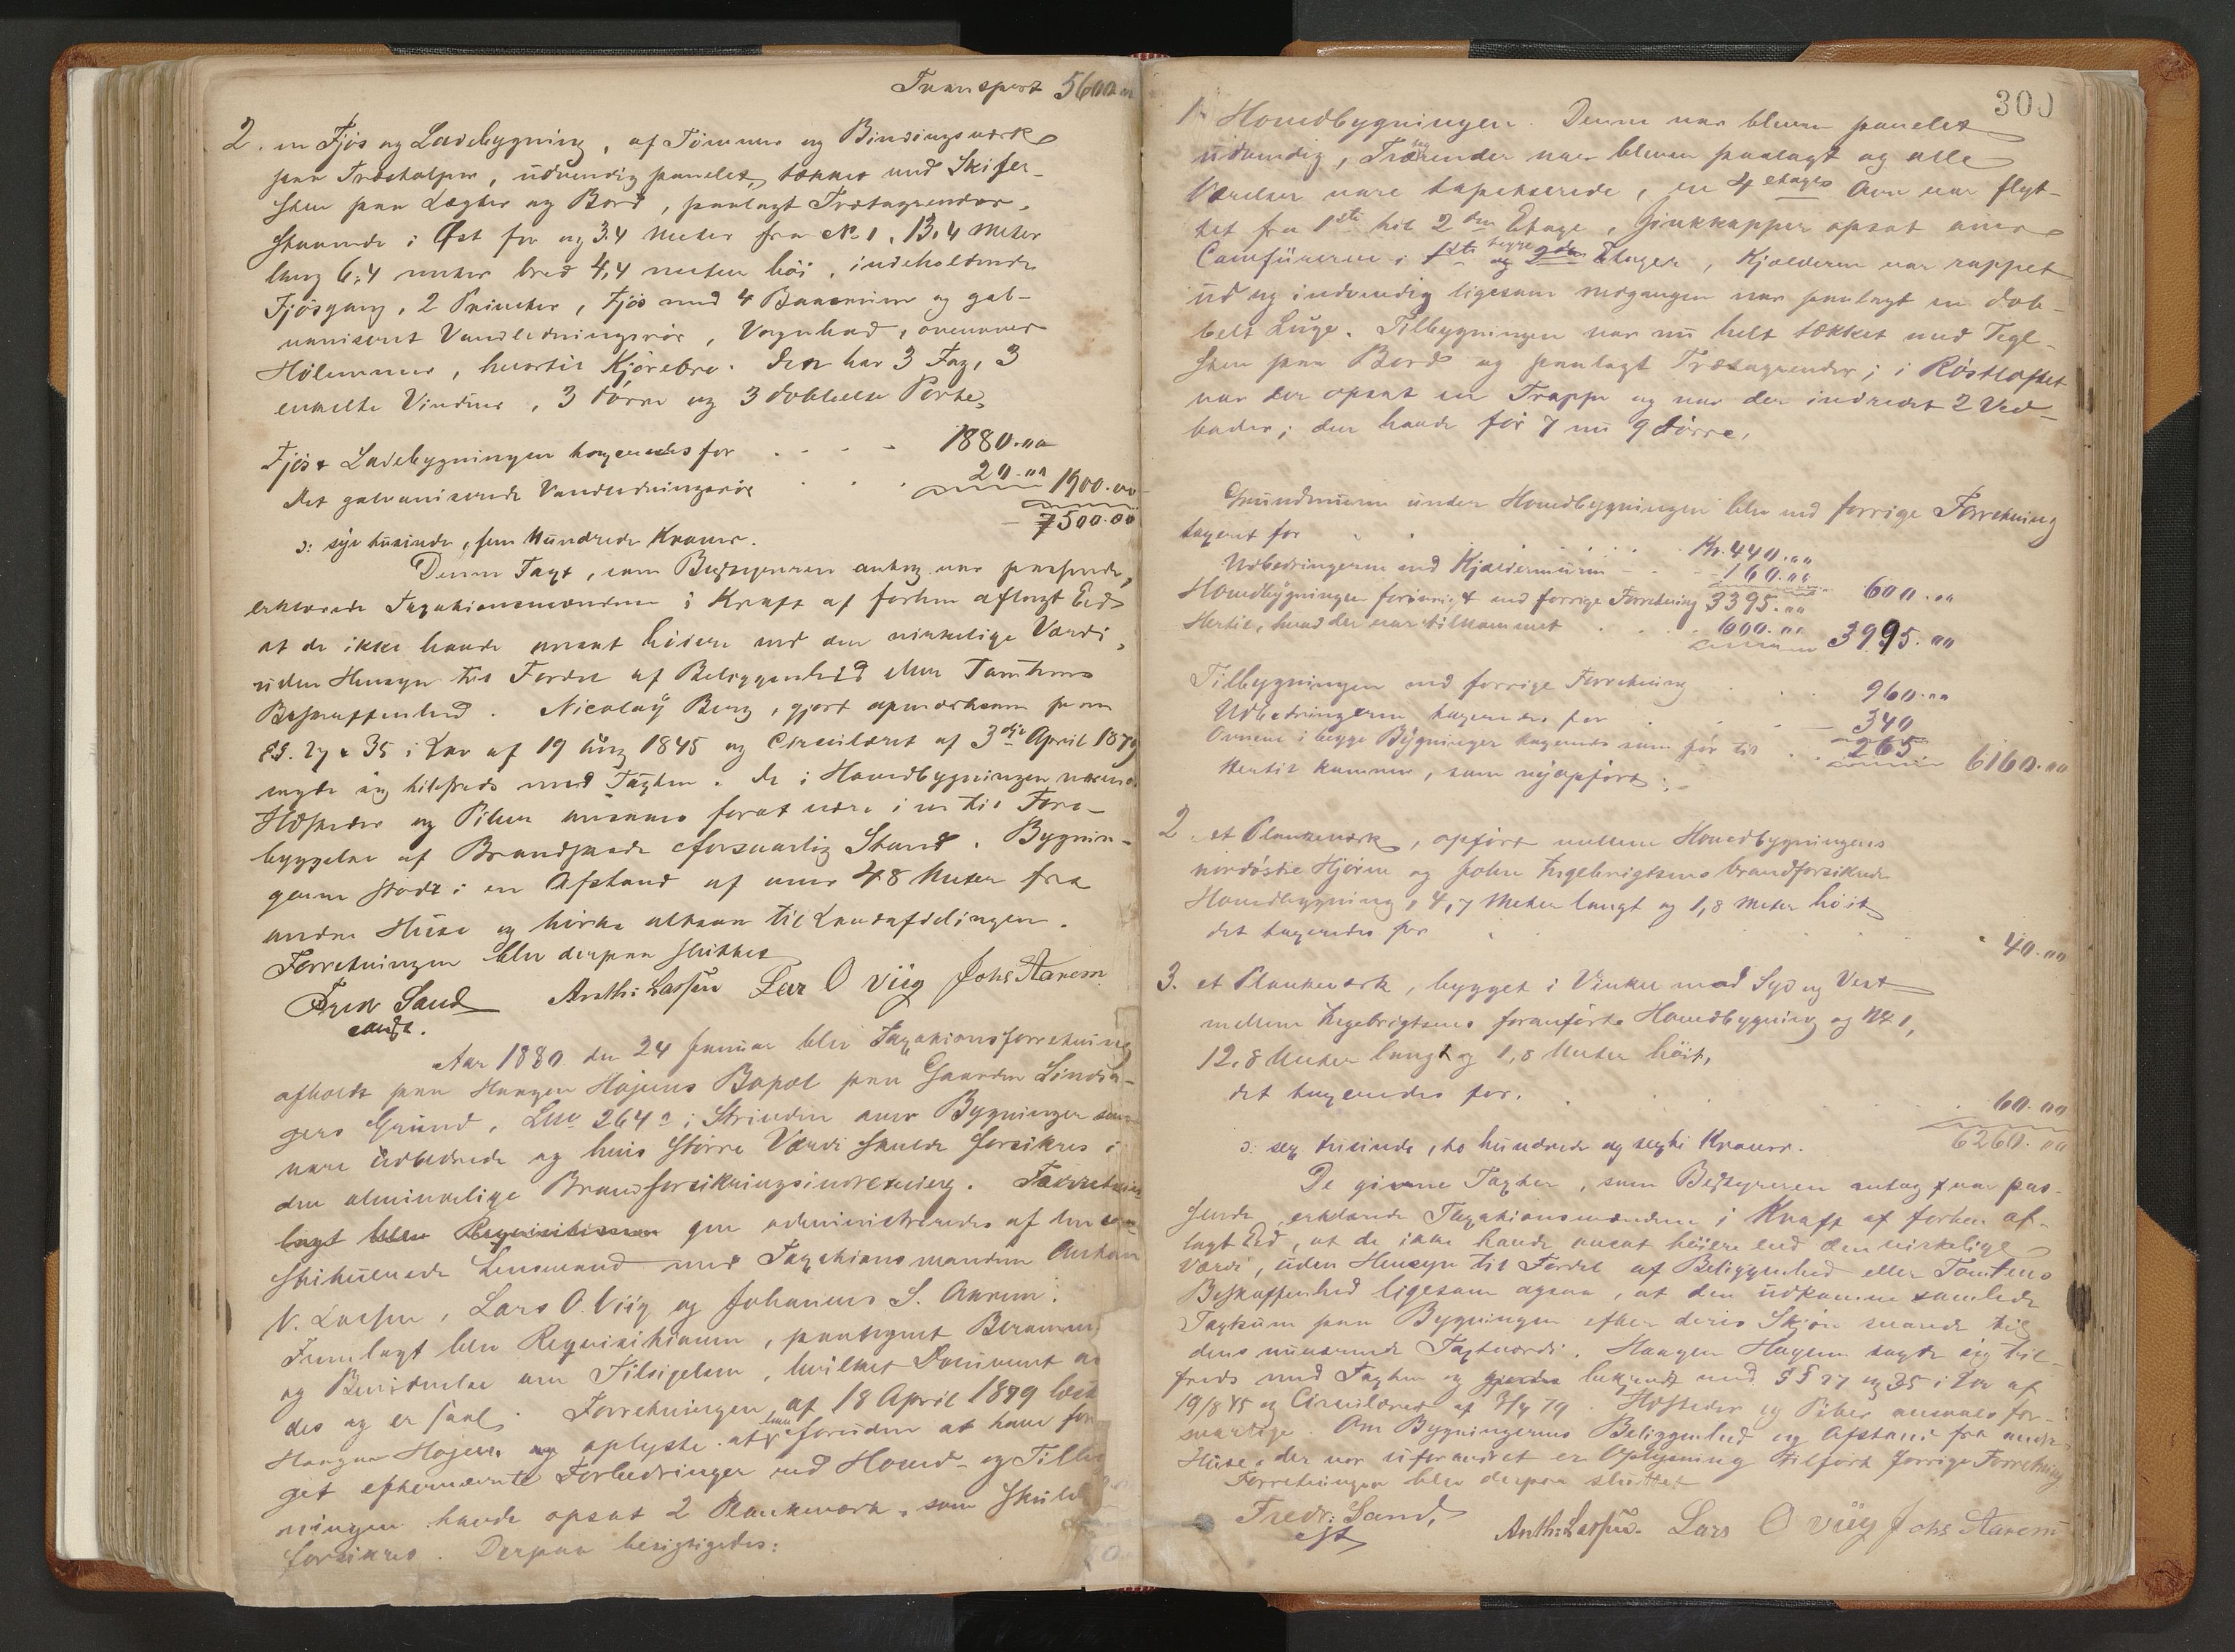 Transport 5600.00
2. en Fjös og Ladebygning, af Tömmer og Bindingsværk
paa Træstolper, udvendig panelet, tækket med Skifer-
sten paa Lægter og Bord, paalagt Trætagrender,
staaende i Öst for og 3,4 Meter fra No 1, 13,4 Meter
lang 6,4 meter bred 4,4 meter höi, indeholdende
Fjösgang, 2 Priveter, Fjös med 4 Baaserum og gal-
vaniseret Vandledningsrör, Vognskud, ovenover
Hölemmer, hvortil Kjörebro. Den har 3 Fag, 3
enkelte Vinduer, 3 Dörre og 3 dobbelte Porte,
Fjös & Ladebygningen taxeredes for 1880.00
det galvaniserede Vandledningsrör 20.00 1900.00
7500.00
ɔ: syv tusinde, fem Hundrede Kroner.
Denne Taxt, som Bestyreren antog var passende,
erklærede Taxationsmændene i Kraft af forhen aflagt Eed
at de ikke havde ansat höiere end den virkelige Værdi,
uden Hensyn til Fordel af Beliggenhed eller Tomtens
Beskaffenhed. Nicolaÿ Berg, gjort opmærksom paa
§§. 27 & 35 i Lov af 19 Aug 1845 og Circulæret af 3die April 1879
sagde sig tilfreds med Taxten. De i Hovedbygningen værende
Ildsteder og Piber ansaaes forat være i en til Fore-
byggelse af Brandskade forsvarlig Stand. Bygnin-
gerne stode i en Afstand af over 48 Meter fra
andre Huse og hörte altsaa til Landafdelingen.
Forretningen blev derpaa sluttet
Fredr Sand Anth: Lassen Lars O Viig Johs Aarem
const.
Aar 1880 den 24 Januar blev Taxationsforretning
afholdt paa Haagen Hajems Bopæl paa Gaarden Linds-
gers Grund, Lno 264 a i Strinden over Bygninger som
vare udbedrede og hvis Större Værdi skulde forsikres i
den almindelige Brandforsikringsindretning. Forretningen
lagt blev Requisitionen gen administreredes af den con-
stituerede Lensmand med Taxationsmændene Anthon
N. Lassen, Lars O. Viig og Johannes S. Aarem.
Fremlagt blev Requisitionen, paategnet Berammelse
og Bevidnelse om Tilsigelsen, hvilket Document
des og er saal. Forretningen af 18 April 1879
Haagen Hajem og oplyste at han foruden at have
get efternævnte Forbedringer ved Hoved- og Tilbyg
ningen havde opsat 2 Plankeværk, som skulde
forsikres. Derpaa besigtigedes:
300
1. Hovedbygningen. Denne var bleven panelet
udvendig, Trærender var bleven paalagt og alle
Værelser vare tapetserede, en 4 etages Ovn var flyt-
tet fra 1ste til 2den Etage, Zinkkapper opsat over
Comfürerne i 1ste og 2den Etager, Kjælderen var rappet
ud og indvendig ligesom nedgangen var paalagt en dob-
belt Luge. Tilbygningen var nu helt tækket med Tegl-
sten paa Bord og paalagt Trætagrender; i Röstloftet
var der opsat en Trappe og var der indredet 2 Ved-
boder; den havde för 7 nu 9 Dörre,
Grundmuren under Hovedbygningen blev ved forrige Forretning
taxeret for Kr. 440.00
Udbedringerne ved Kjældermuren 160.00 600.00
Hovedbygningen forövrigt ved forrige Forretning 3395.00
Hertil, hvad der var tilkommet 600.00 3995.00
Tilbygningen ved forrige Forretning 960.00
Udbedringerne taxeredes for 340
Ovnene i begge Bÿgninger taxeredes som för til 265 6160.00
Hertil kommer, som nyopfört:
2. et Plankeværk, opfört mellem Hovedbygningens
nordöstre Hjörne og John Ingebrigtsens brandforsikrede
Hovedbygning, 4,7 Meter langt og 1,8 Meter höit
det taxeredes for 40.00
3. et Plankeværk, bygget i Vinkel mod Syd og Vest
mellem Ingebrigtsens foranförte Hovedbygning og No 1,
12,8 Meter langt og 1,8 Meter höit,
det taxeredes for. 60.00
6260.00
ɔ: sex tusinde, to hundrede og sexti Kroner.
De givne Taxter, som Bestyreren antog var pas-
sende, erklærede Taxationsmændene i Kraft af forhen af-
lagt Eed, at de ikke havde ansat höiere end den virkelige
Værdi, uden Hensyn til Fordel af Beliggenhed eller Tomtens
Beskaffenhed ligesom ogsaa, at den udkomne samlede
Taxtsum paa Bygningen efter deres Skjön svarede til
dens nuværende Taxtværdi. Haagen Hagem sagde sig til-
freds med Taxten og gjordes bekjendt med §§ 27 og 35 i Lov af
19/8 45 og Circulæret af 3/4 79. Ildsteder og Piber ansaaes for-
svarlige. Om Bygningernes Beliggenhed og Afstand fra andre
Huse, der var uforandret er Oplysning tilfört forrige Forretning
Forretningen blev derpaa sluttet
Fredr: Sand,
cst Anth: Lassen. Lars O Viig Johs Aarem